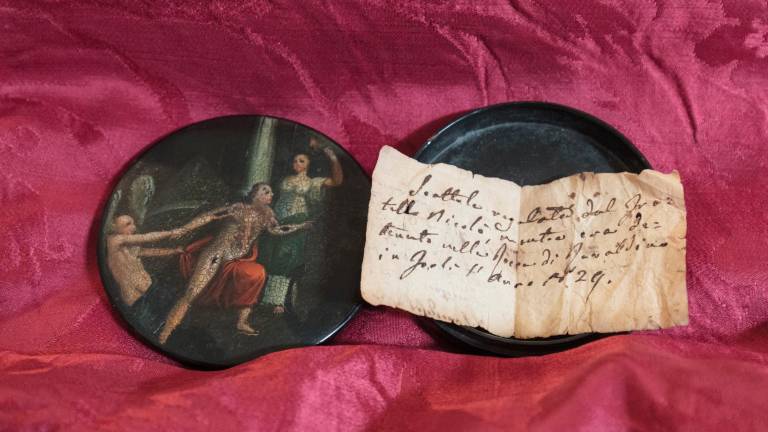 Scattola regalata dal Fra=
tello Nicolò mentre era de=
tenuto nella Rocca di Ravaldino
in Forlì l'Anno 29.